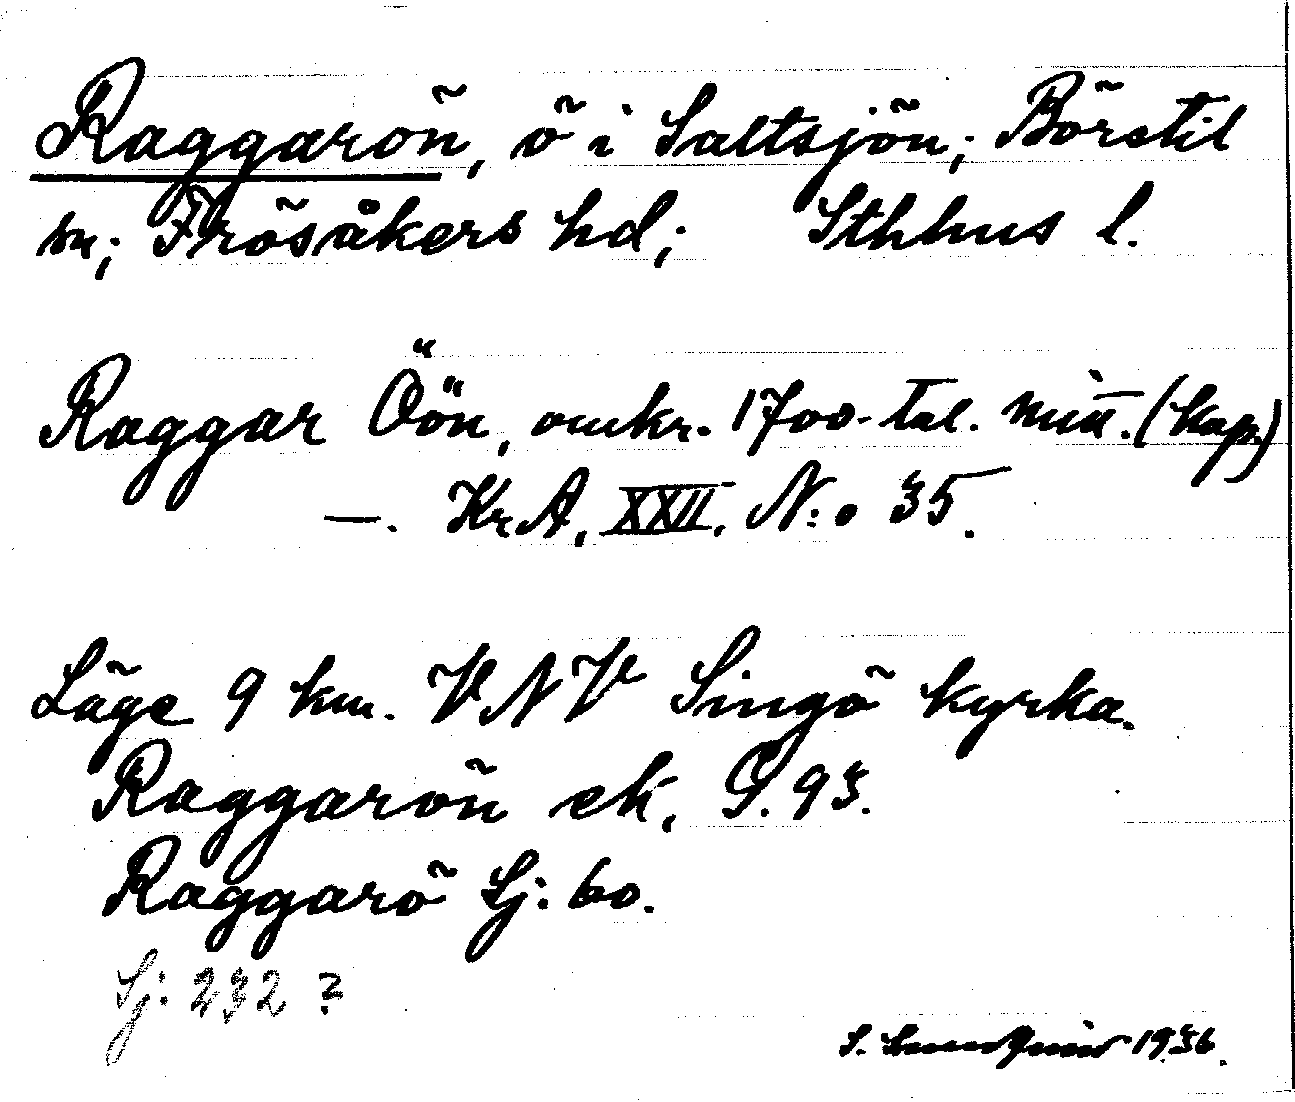 Raggarön, ö i Saltsjön; Börstil
sn; Frösåkers hd; Sthlms l.
Raggar Öön, omkr. 1700-tal. mitt. (kap.)
—. Kr.A. XXII. N:o 35.
Läge 9 km. VNV Singö kyrka.
Raggarön ek. S. 93.
Raggarö Sj: 60.
Sj: 232 ?
S. Lundqvist 1936.